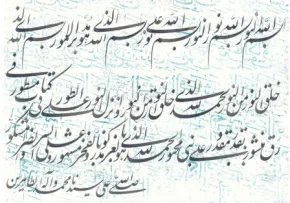 بسم الله النور بسم الله نور النور بسم الله نور علی نور بسم الله الذی هو مدبر الامور بسم الله الذی
خلق النور من النور الحمد لله الذی خلق النور من النور و انزل النور علی الطور فی کتاب مسطور فی
رق منشور بقدر مقدور علی نبی محبور الحمد لله الذی هو بالعز مذکور و بالفخر مشهور و علی السراء و الضراء مشکور
و صلی الله علی سیدنا محمد و آله الطاهرین